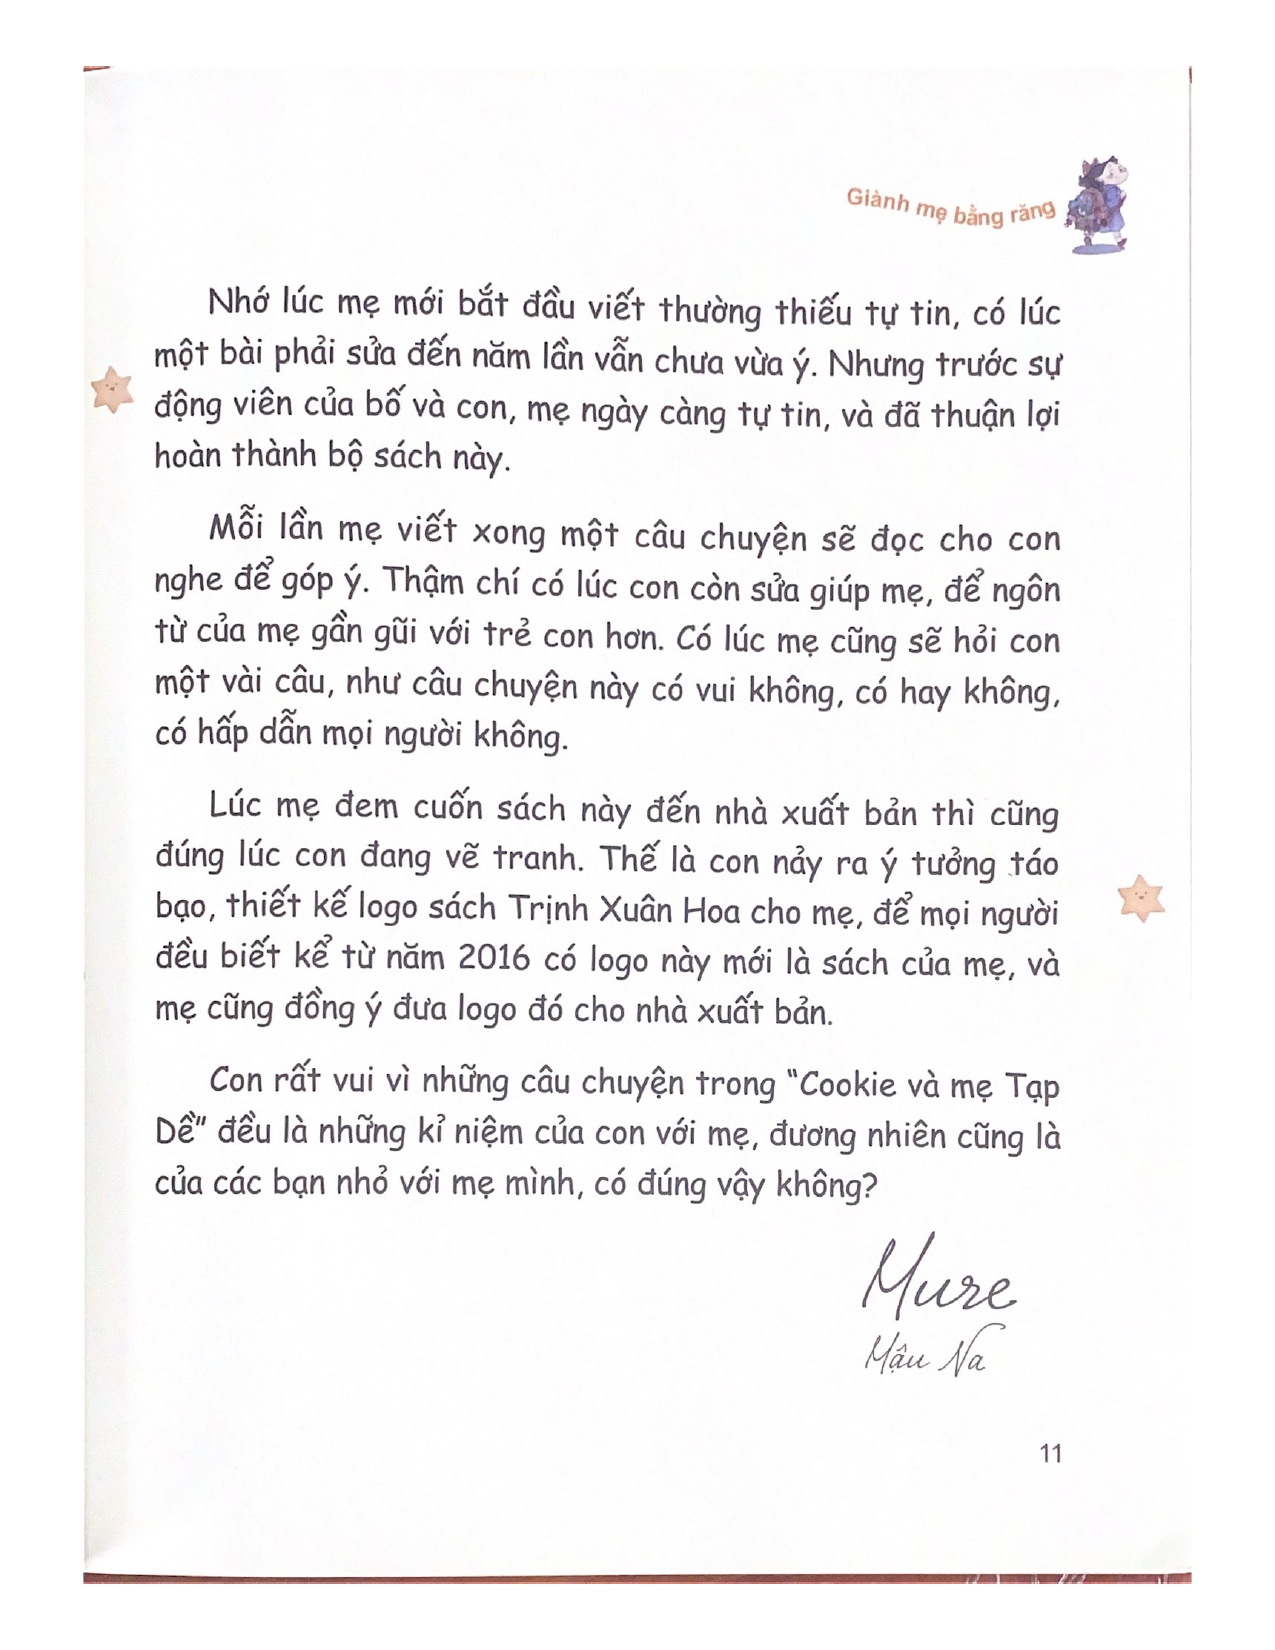 Giành mẹ bằng răng
Nhớ lúc mẹ mới bắt đầu viết thường thiếu tự tin, có lúc
một bài phải sửa đến năm lần vẫn chưa vừa ý. Nhưng trước sự
động viên của bố và con, mẹ ngày càng tự tin, và đã thuận lợi
hoàn thành bộ sách này.
Mỗi lần mẹ viết xong một câu chuyện sẽ đọc cho con
nghe để góp ý. Thậm chí có lúc con còn sửa giúp mẹ, để ngôn
từ của mẹ gần gũi với trẻ con hơn. Có lúc mẹ cũng sẽ hỏi con
một vài câu, như câu chuyện này có vui không, có hay không,
có hấp dẫn mọi người không.
Lúc mẹ đem cuốn sách này đến nhà xuất bản thì cũng
đúng lúc con đang vẽ tranh. Thế là con nảy ra ý tưởng táo
bạo, thiết kế logo sách Trịnh Xuân Hoa cho mẹ, để mọi người
đều biết kể từ năm 2016 có logo này mới là sách của mẹ, và
mẹ cũng đồng ý đưa logo đó cho nhà xuất bản.
Con rất vui vì những câu chuyện trong "Cookie và mẹ Tạp
Dề" đều là những kỉ niệm của con với mẹ, đương nhiên cũng là
của các bạn nhỏ với mẹ mình, có đúng vậy không?
Mure
Mậu Na
11